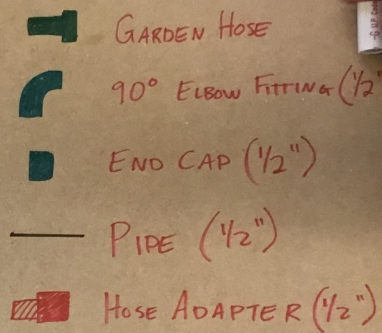 GARDEN HOSE
90° ELBOW FITTING (1/2"
END CAP (1/2")
PIPE (1/2")
HOSE ADAPTER (1/2")